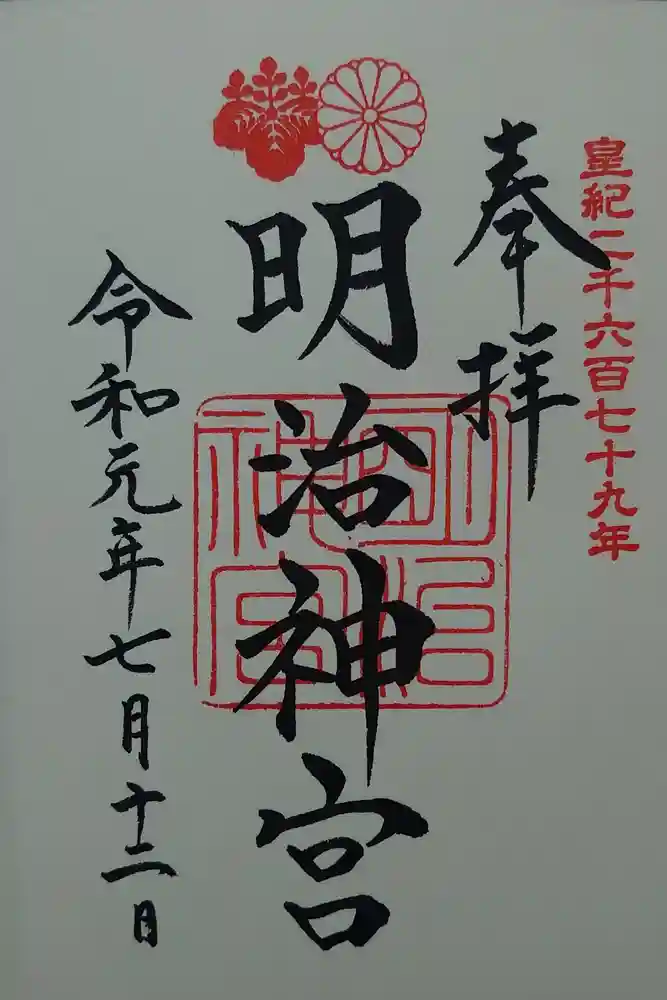 皇紀二千六百七十九年
奉拝
明治神宮
明治
神宮
令和元年七月十二日